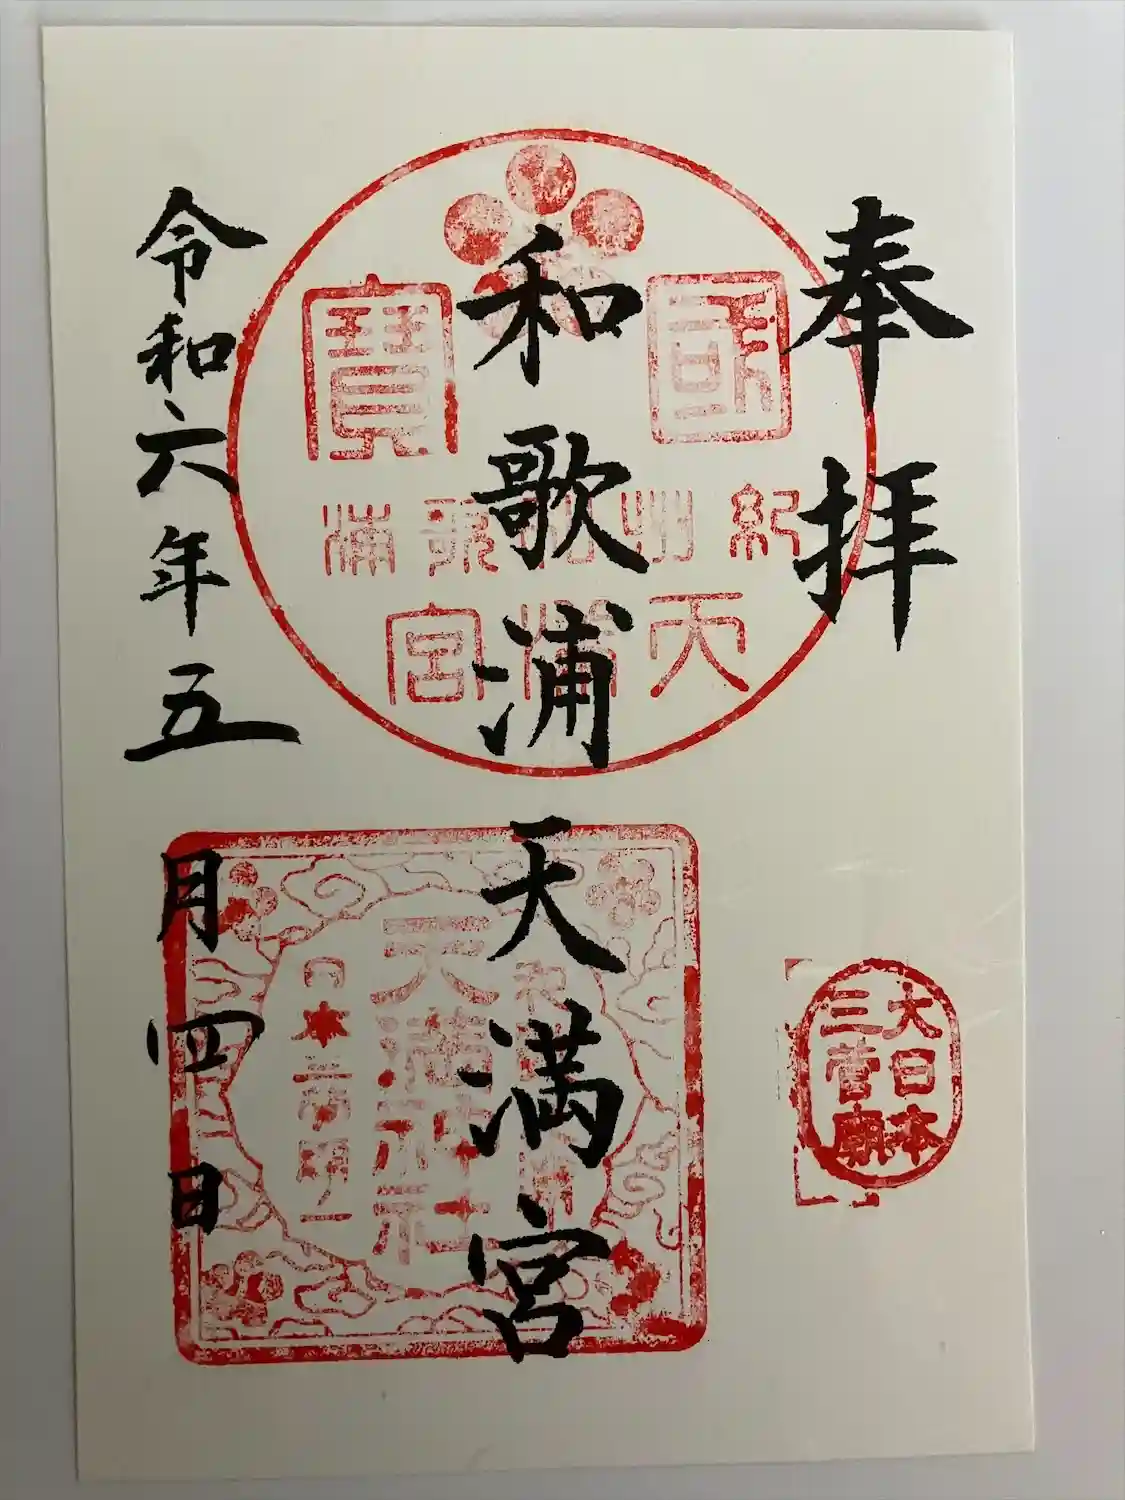 奉拝
大日本
三菅廟
和歌浦天満宮
國寶
紀州和歌浦
天満宮
天満神社
令和六年五月四日